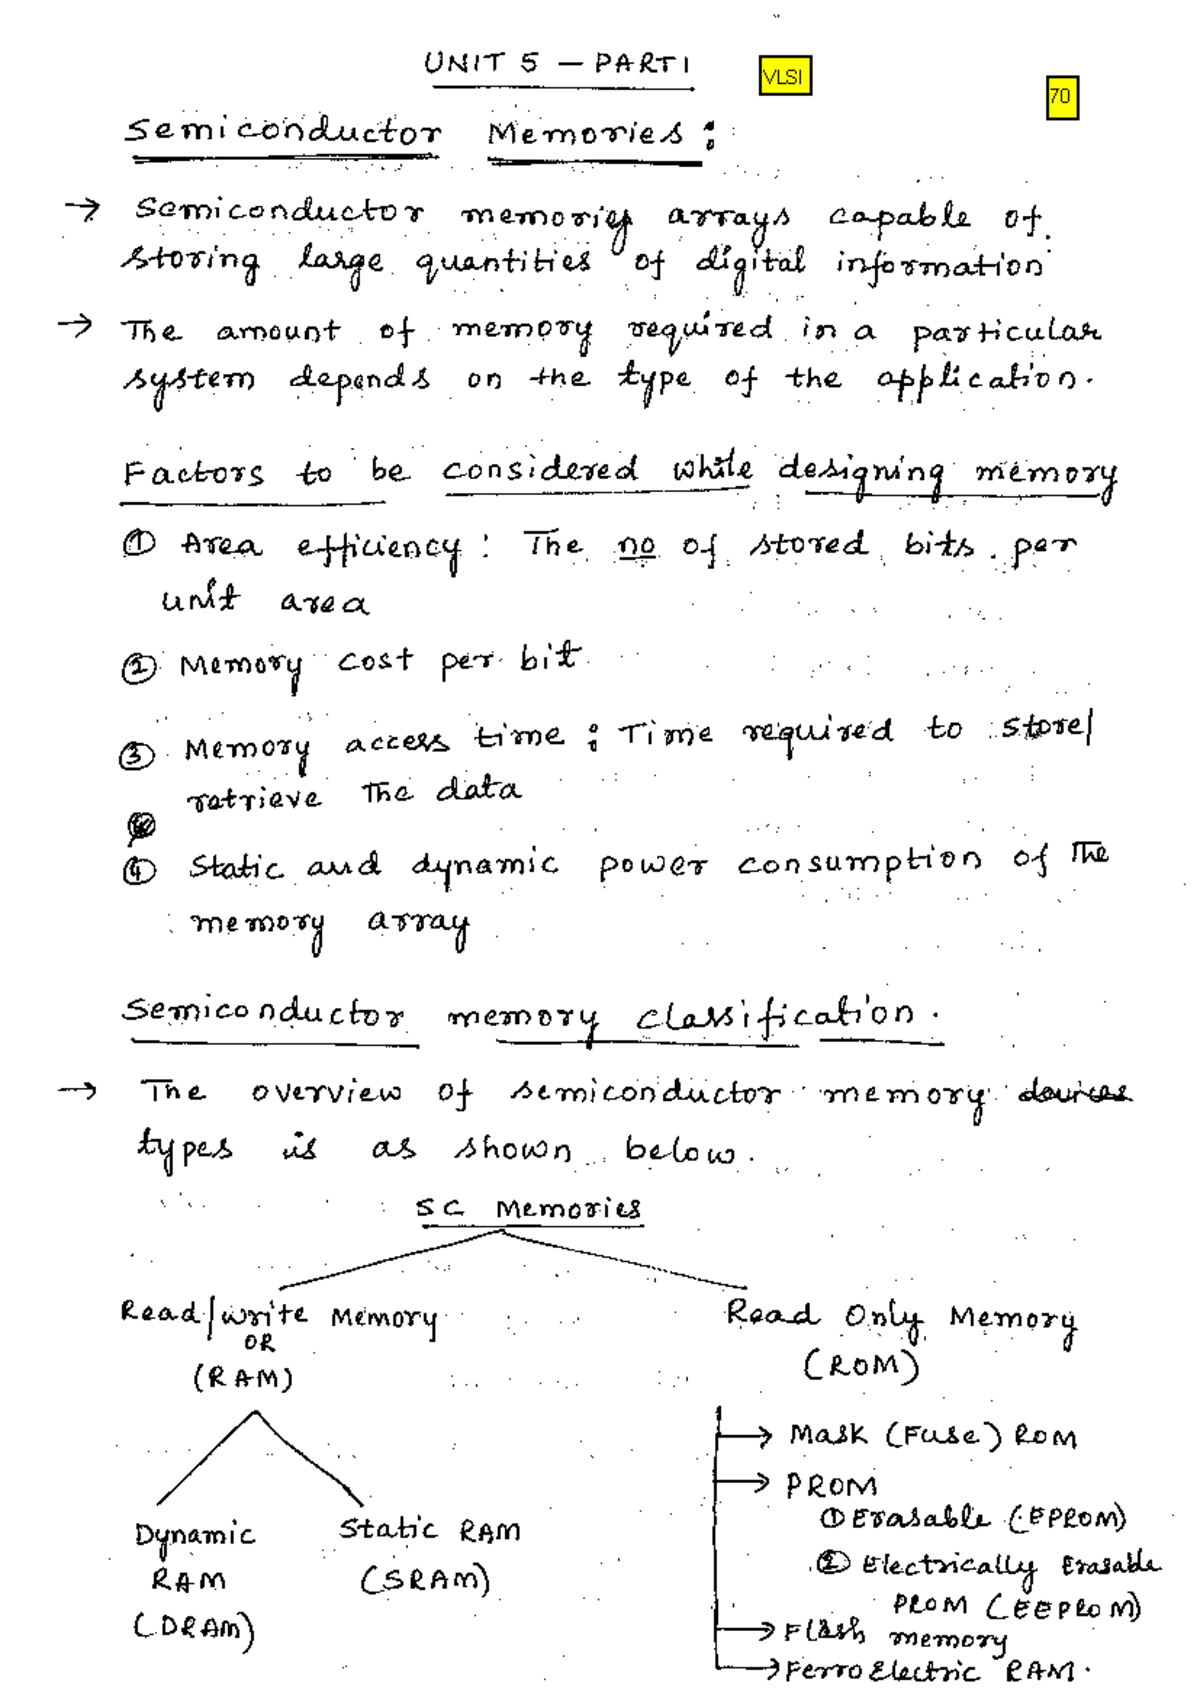 UNIT 5 — PART1
VLSI
70
Semiconductor Memories :
→ Semiconductor memories arrays capable of
storing large quantities of digital information
→ The amount of memory required in a particular
system depends on the type of the application.
Factors to be considered while designing memory
① Area efficiency : The no of stored bits per
unit area
② Memory cost per bit
③ Memory access time : Time required to store/
retrieve The data
④ Static and dynamic power consumption of The
memory array
Semiconductor memory classification.
→ The overview of semiconductor memory devices
types is as shown below.
SC Memories
Read/write Memory
OR
(RAM)
Dynamic
RAM
(DRAM)
Static RAM
(SRAM)
Read Only Memory
(ROM)
→ Mask (Fuse) ROM
→ PROM
① Erasable (EPROM)
② Electrically Erasable
PROM (EEPROM)
→ Flash memory
→ Ferro Electric RAM.